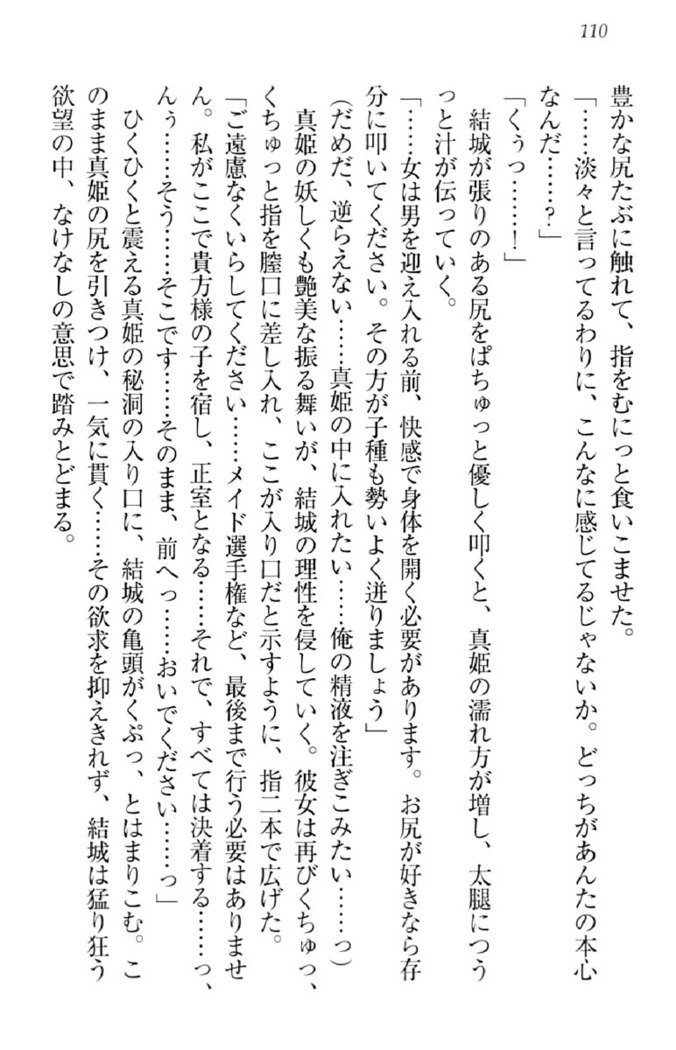 110
豊かな尻たぶに触れて、指をむにっと食いこませた。
「……淡々と言ってるわりに、こんなに感じてるじゃないか。どっちがあんたの本心
なんだ……?」
「くぅっ……!」
結城が張りのある尻をぱちゅっと優しく叩くと、真姫の濡れ方が増し、太腿につう
っと汁が伝っていく。
「……女は男を迎え入れる前、快感で身体を開く必要があります。お尻が好きなら存
分に叩いてください。その方が子種も勢いよく迸りましょう」
(だめだ、逆らえない……真姫の中に入れたい……俺の精液を注ぎこみたい……っ)
真姫の妖しくも艶美な振る舞いが、結城の理性を侵していく。彼女は再びくちゅっ、
くちゅっと指を膣口に差し入れ、ここが入り口だと示すように、指二本で広げた。
「ご遠慮なくいらしてください……メイド選手権など、最後まで行う必要はありませ
ん。私がここで貴方様の子を宿し、正室となる……それで、すべては決着する……っ、
んぅ……そう……そこです……そのまま、前へっ……おいでください……っ」
ひくひくと震える真姫の秘洞の入り口に、結城の亀頭がくぷっ、とはまりこむ。こ
のまま真姫の尻を引きつけ、一気に貫く……その欲求を抑えきれず、結城は猛り狂う
欲望の中、なけなしの意思で踏みとどまる。